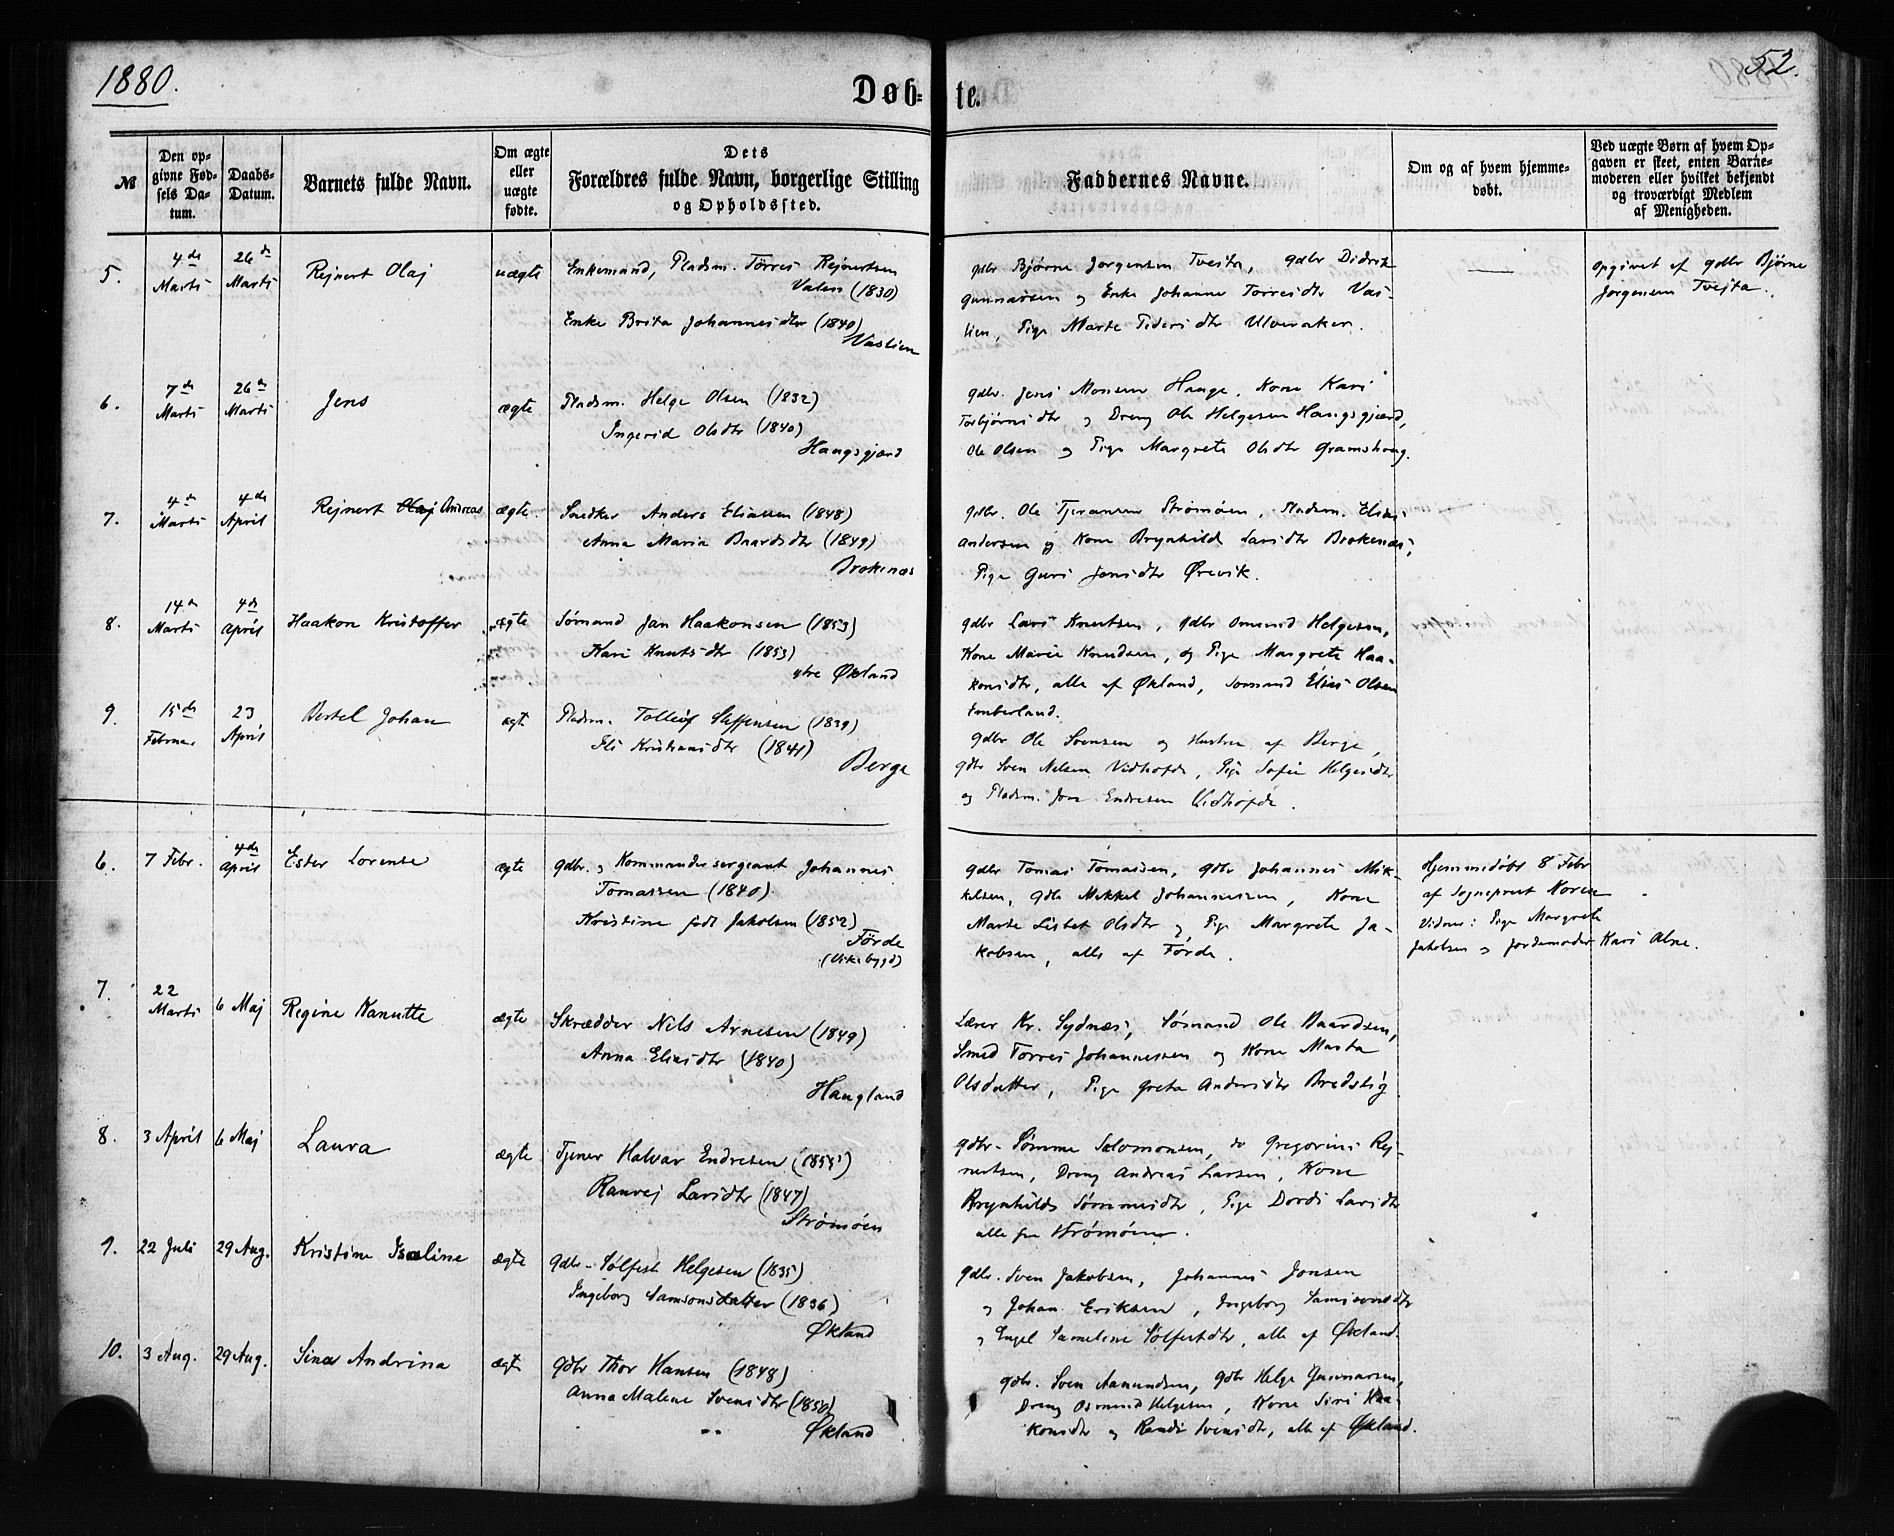 1880.
52.
Døb-
te.
№
Den opgivne Fødsels Datum.
Daabs-Datum.
Barnets fulde Navn.
Om ægte eller uægte fødte.
Dets Forældres fulde Navn, borgerlige Stilling og Opholdssted.
Faddernes Navne.
Om og af hvem hjemmedøbt.
Ved uægte Børn af hvem Opgaven er skeet, enten Barnemoderen eller hvilket bekjendt og troværdigt Medlem af Menigheden.
5. 4de Marts 26de Marts Rejnert Olaj uægte
Enkemand, Pladsm. Törres Rejnertsen
Valen (1830)
Enke Brita Johannesdtr (1840)
Vaslien
gdbr Bjørne Jørgensen Tvejta, gdbr Didrik
Gunnarsen og Enke Johanne Torresdtr Vas-
lien, Pige Marte Pedersdtr Ulveraker.
—
Opgivet af gdbr Bjørne
Jørgensen Tvejta.
6. 7de Marts 26de Marts Jens ægte
Pladsm. Helge Olsen (1832)
Ingerid Olsdtr (1840)
Haugsgjærd
gdbr. Jens Monsen Hauge, Kone Kari
Torbjørnsdtr og Dreng Ole Helgesen Haugsgjærd,
Ole Olsen og Pige Margrete Olsdtr Gramshaug.
7. 4de Marts 4de April Rejnert Olaj Andreas ægte
Snedker Anders Eliassen (1848)
Anna Maria Baardsdtr (1849)
Brokenæs
gdbr. Ole Tjeransen Strømøen, Pladsm. Elias
Andersen og Kone Brynhild Larsdtr Brokenæs,
Pige Guri Jonsdtr Ørevik.
8. 14de Marts 4de April Haakon Kristoffer ægte
Sømand Jan Haakonsen (1853)
Kari Knutsdtr (1853)
ytre Økland
gdbr Lars Knutsen, gdbr Omund Helgesen,
Kone Marie Knudsen, og Pige Margrete Haa-
konsdtr, alle af Økland, Sømand Elias Olsen
Emberland.
9. 15de Februar 23 April Bertel Johan ægte
Pladsm. Tolleif Steffensen (1839)
Eli Kristiansdtr (1841)
Berge
gdbr Ole Svensen og Hustru af Berge,
gdbr Sven Nelsen Vidhofde, Pige Sofie Helgesdtr
og Pladsm. Jon Endresen Vidhofde.
6. 7 Febr. 4de April Ester Lorense ægte
gdbr. og Kommandersergeant Johannes
Tomassen (1840)
Kristine født Jakobsen (1852)
Førde
(Vikebygd)
gdbr Tomas Tomassen, gdbr Johannes Mik-
kelsen, gdbr Mikkel Johannessen, Kone
Marte Lisbet Olsdtr og Pige Margrete Ja-
kobsen, alle af Førde.
Hjemmedøbt 8 Febr
af Sogneprest Noren
Vidner: Pige Margrete
Jakobsen og Jordemoder Kari Alne.
7. 22 Marts 6 Maj Regine Kanutte ægte
Skrædder Nils Arnesen (1849)
Anna Eliasdtr (1840)
Haugland
Lærer Kr. Sydnæs, Sømand Ole Baardsen,
Smed Torres Johannessen og Kone Marta
Olsdatter, Pige Greta Andersdtr Bredstig
8. 3 April 6 Maj Laura ægte
Tjener Halvar Endresen (1855)
Ranvej Larsdtr (1847)
Strømøen
gdbr. Sømme Salomonsen, do Gregorius Rej-
nertsen, Dreng Andreas Larsen, Kone
Brynhilde Sømmesdtr, Pige Dordi Larsdtr
alle fra Strømøen.
9. 22 Juli 29 Aug. Kristine Isaline ægte
Gdbr. Sølfest Helgesen (1835)
Ingeborg Samsonsdatter (1836)
Økland
gdbr. Sven Jakobsen, Johannes Jonsen
og Johan Eriksen, Ingeborg Samsonsdtr
og Engel Sameline Sølfestdtr, alle af Økland.
10. 3 Aug. 29 Aug. Sina Andrina ægte
gdbr Thor Hansen (1848)
Anna Malene Svensdtr (1850)
" Økland
gdbr. Sven Aanundsen, gdbr Helge Gunnarsen,
Dreng Osmund Helgesen, Kone Siri Haa-
konsdtr og Randi Svensdtr, alle af Økland.